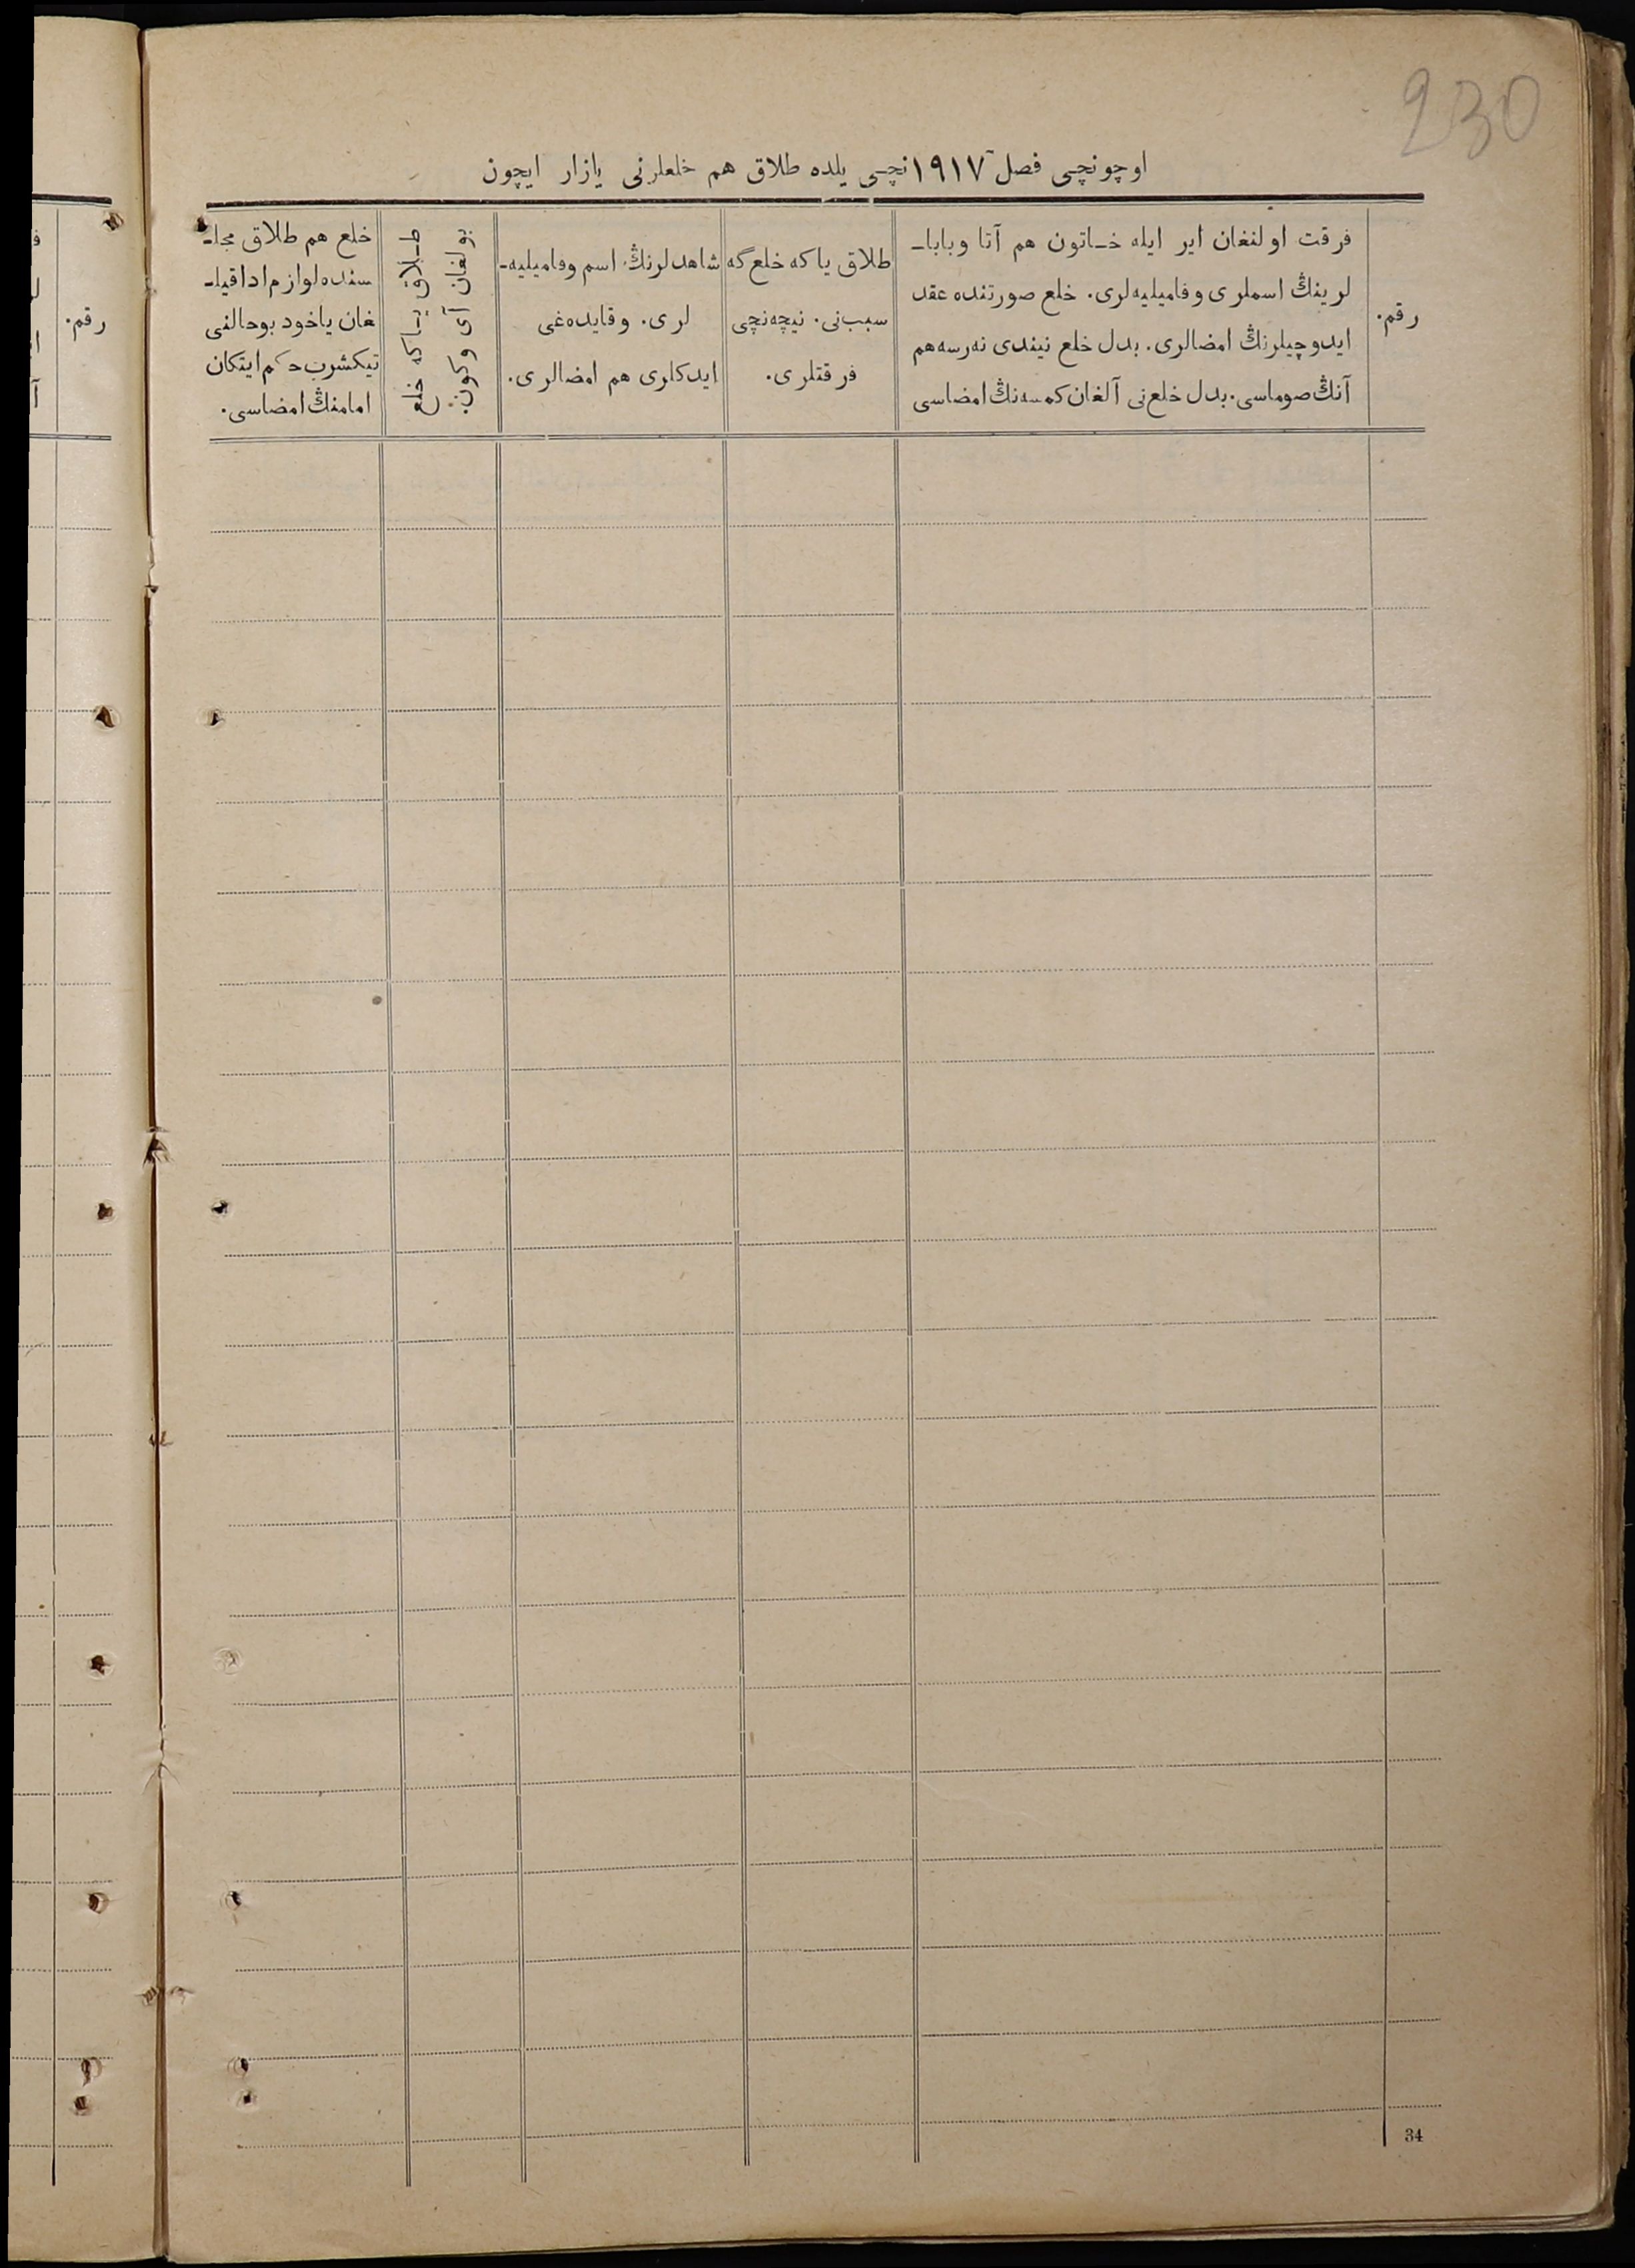 230
اوچونچی فصل ١٩١٧نچی یلده طلاق هم خلعلرنی یازار ایچون
رقم.
فرقت اولنغان ایر ایله خاتون هم آتا وبابا-
لرینڭ اسملری وفامیلیه‌لری. خلع صورتنده عقد
ایدوچیلرنڭ امضالری. بدل خلع نیندی نه‌رسه هم
آنڭ صوماسی. بدل خلع‌نی آلغان کمسه‌نڭ امضاسی
طلاق یاکه خلع‌گه
سبب‌نی. نیچه‌نچی
فرقتلری.
شاهدلرنڭ اسم وفامیلیه-
لری. وقایده‌غی
ایدکلری هم امضالری.
طلاق یاکه خلع
بولغان آی وکون.
خلع هم طلاق مجا-
سنده لوازم اداقیلـ
غان یاخود بوحالنی
تیکشرب حکم ایتکان
امامنڭ امضاسی.
رقم.
34